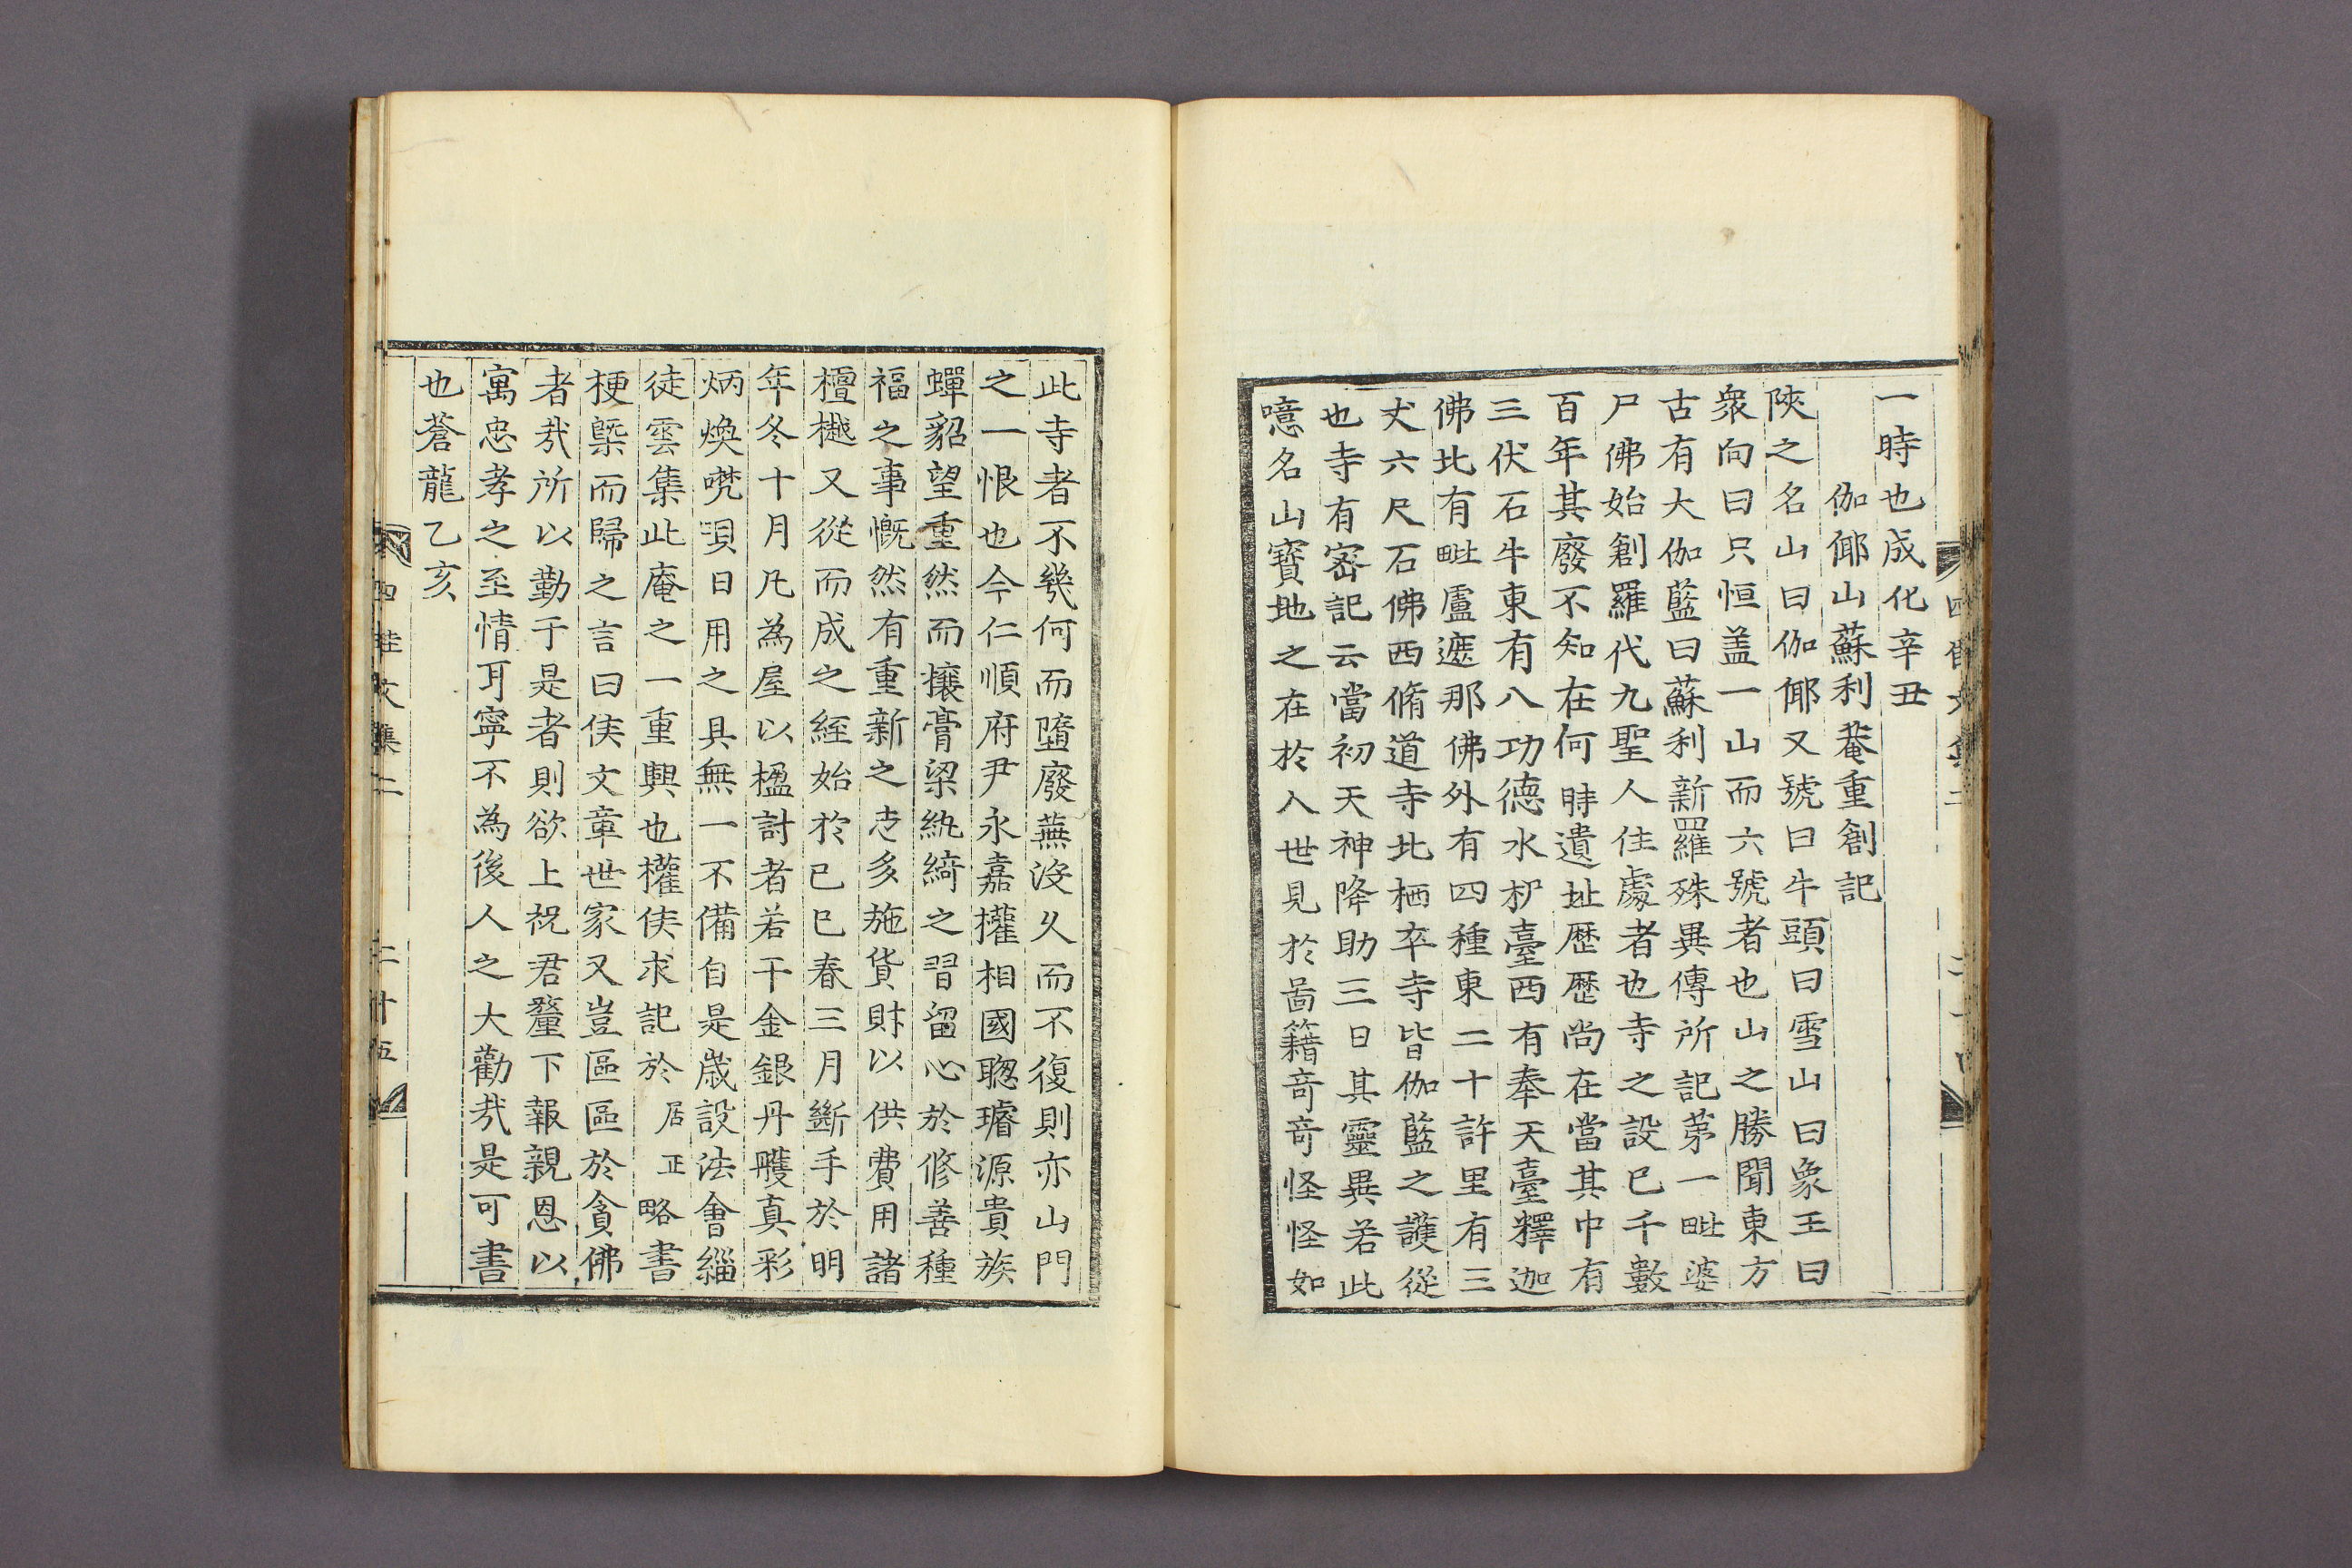 一時也成化辛丑
伽倻山蘇利菴重創記
陜之名山曰伽倻又號曰牛頭曰雪山曰象王曰
衆向曰只恒盖一山而六號者也山之勝聞東方
古有大伽藍曰蘇利新羅殊異傳所記苐一毗婆
尸佛始創羅代九聖人住處者也寺之設已千數
百年其廢不知在何時遺址歷歷尚在當其中有
三伏石牛東有八功德水枦臺西有奉天臺釋迦
佛北有毗盧遮那佛外有四種東二十許里有三
丈六尺石佛西脩道寺北栖卒寺皆伽藍之護從
也寺有宻記云當初天神降助三日其靈異若此
噫名山寶地之在於人世見於啚籍竒竒怪怪如
此寺者不幾何而墮廢蕪沒久而不復則亦山門
之一恨也今仁順府尹永嘉權相國聦璿源貴族
蟬貂望重然而攘膏粱紈綺之習留心於修善種
福之事慨然有重新之志多施貨財以供費用諸
檀樾又從而成之經始於己巳春三月斷手於明
年冬十月凡為屋以楹計者若干金銀丹雘真彩
炳煥熿
日用之具無一不備自是歲設法會緇
徒雲集此庵之一重興也權侯求記於居正略書
梗槩而歸之言曰侯文章世家又豈區區於貪佛
者㢤所以勤于是者則欲上祝君釐下報親恩以
寓忠孝之至情耳寧不為後人之大勸㢤是可書
也蒼龍乙亥
四佳文集二
二十五